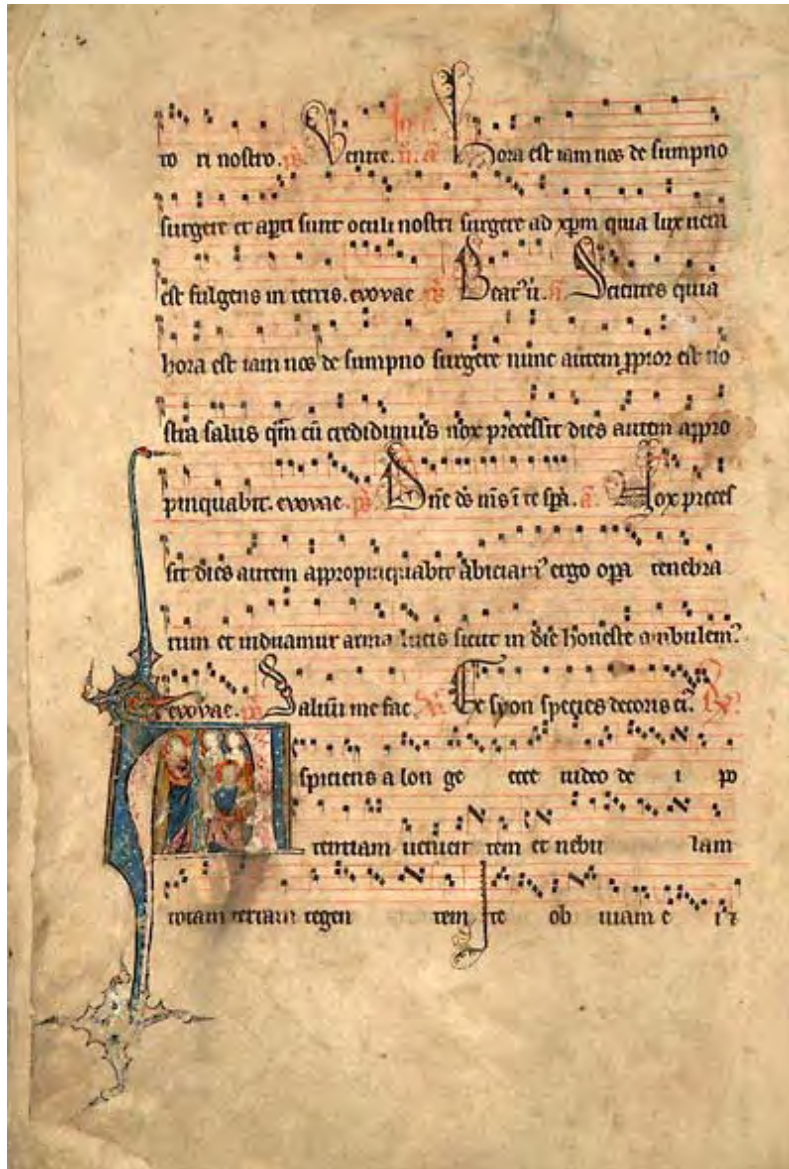 to ri nostro. ps Venite. Hora est iam nos de sumpno
surgere et apti sunt oculi nostri surgere ad xpm quia lux uera
est fulgens in terris. evovae ps Beat' Scientes quia
hora est iam nos de sumpno surgere nunc autem ppior est no
stra salus qm cu credidimus nox precessit dies autem appro
pinquabit. evovae. ps Dne ds ms i te spa. a Nox preces
sit dies autem appropinquabit abiciam' ergo opa tenebra
rum et induamur arma lucis sicut in die honeste ambulem'
evovae. ps Saluu me fac Ex syon species decoris ei'
Aspiciens a lon ge ecce uideo de i po
tentiam uenien tem et nebu lam
totam terram tegen tem Ite ob uiam e i